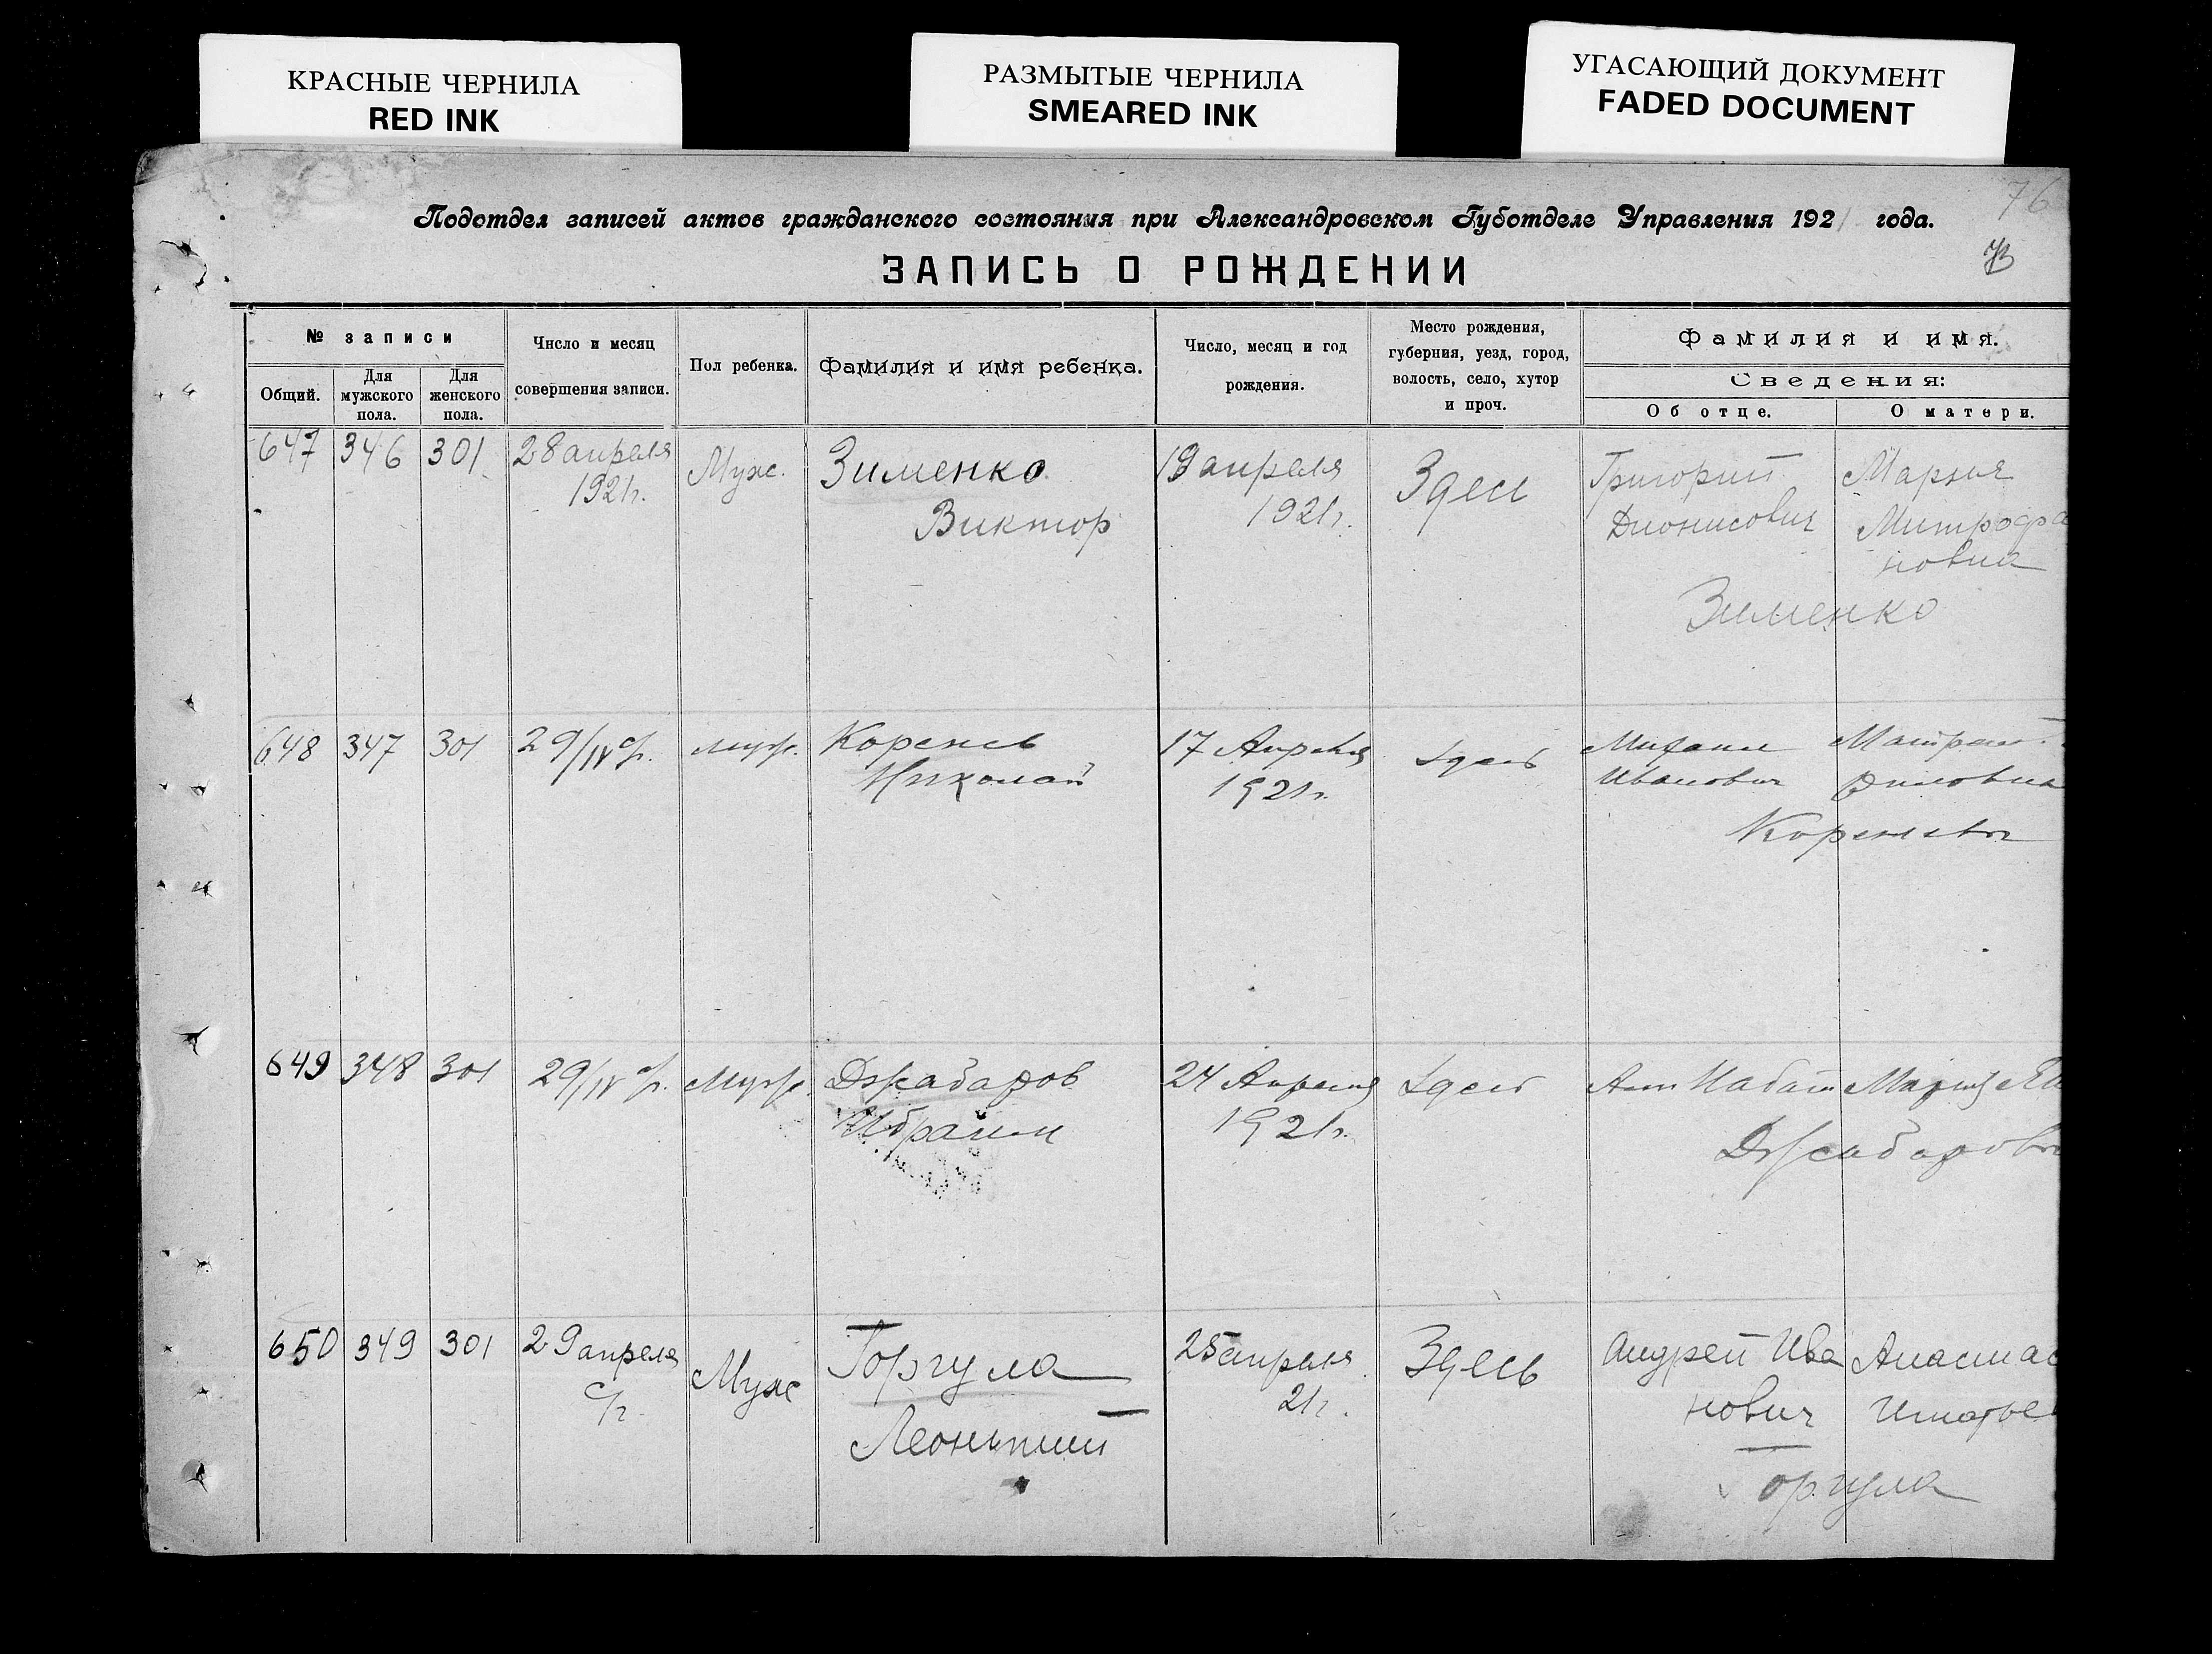 КРАСНЫЕ ЧЕРНИЛА
RED INK
РАЗМЫТЫЕ ЧЕРНИЛА
SMEARED INK
УГАСАЮЩИЙ ДОКУМЕНТ
FADED DOCUMENT
76
Подотдел записей актов гражданского состояния при Александровском Губотделе Управления 1921 года.
ЗАПИСЬ О РОЖДЕНИИ
№ записи
Общий.
Для мужского пола.
Для женского пола.
Число и месяц
совершения записи.
Пол ребенка.
Фамилия и имя ребенка.
Число, месяц и год
рождения.
Место рождения,
губерния, уезд, город,
волость, село, хутор
и проч.
Фамилия и имя.
Сведения:
Об отце.
О матери.
647 346 301 28 апреля Муж. Зименко 19 апреля Здесь Григорий Мария
1921г. Виктор 1921г. Дионисович Митрофа
новна
Зименко
648 347 301 29/IV с/г. муж. Корень 17 Апреля Здесь Михаил
Николай 1921г. Иванович
649 348 301 29/IV с/г. Муж. Джабаров 24 Апреля Здесь
Ибраим 1921г.
Джабаровы
650 349 301 29 апреля Муж Горгула 25 апреля Здесь Андрей Ива Анастас
с/г. Леонтий 21г. нович Игнатье
Горгула